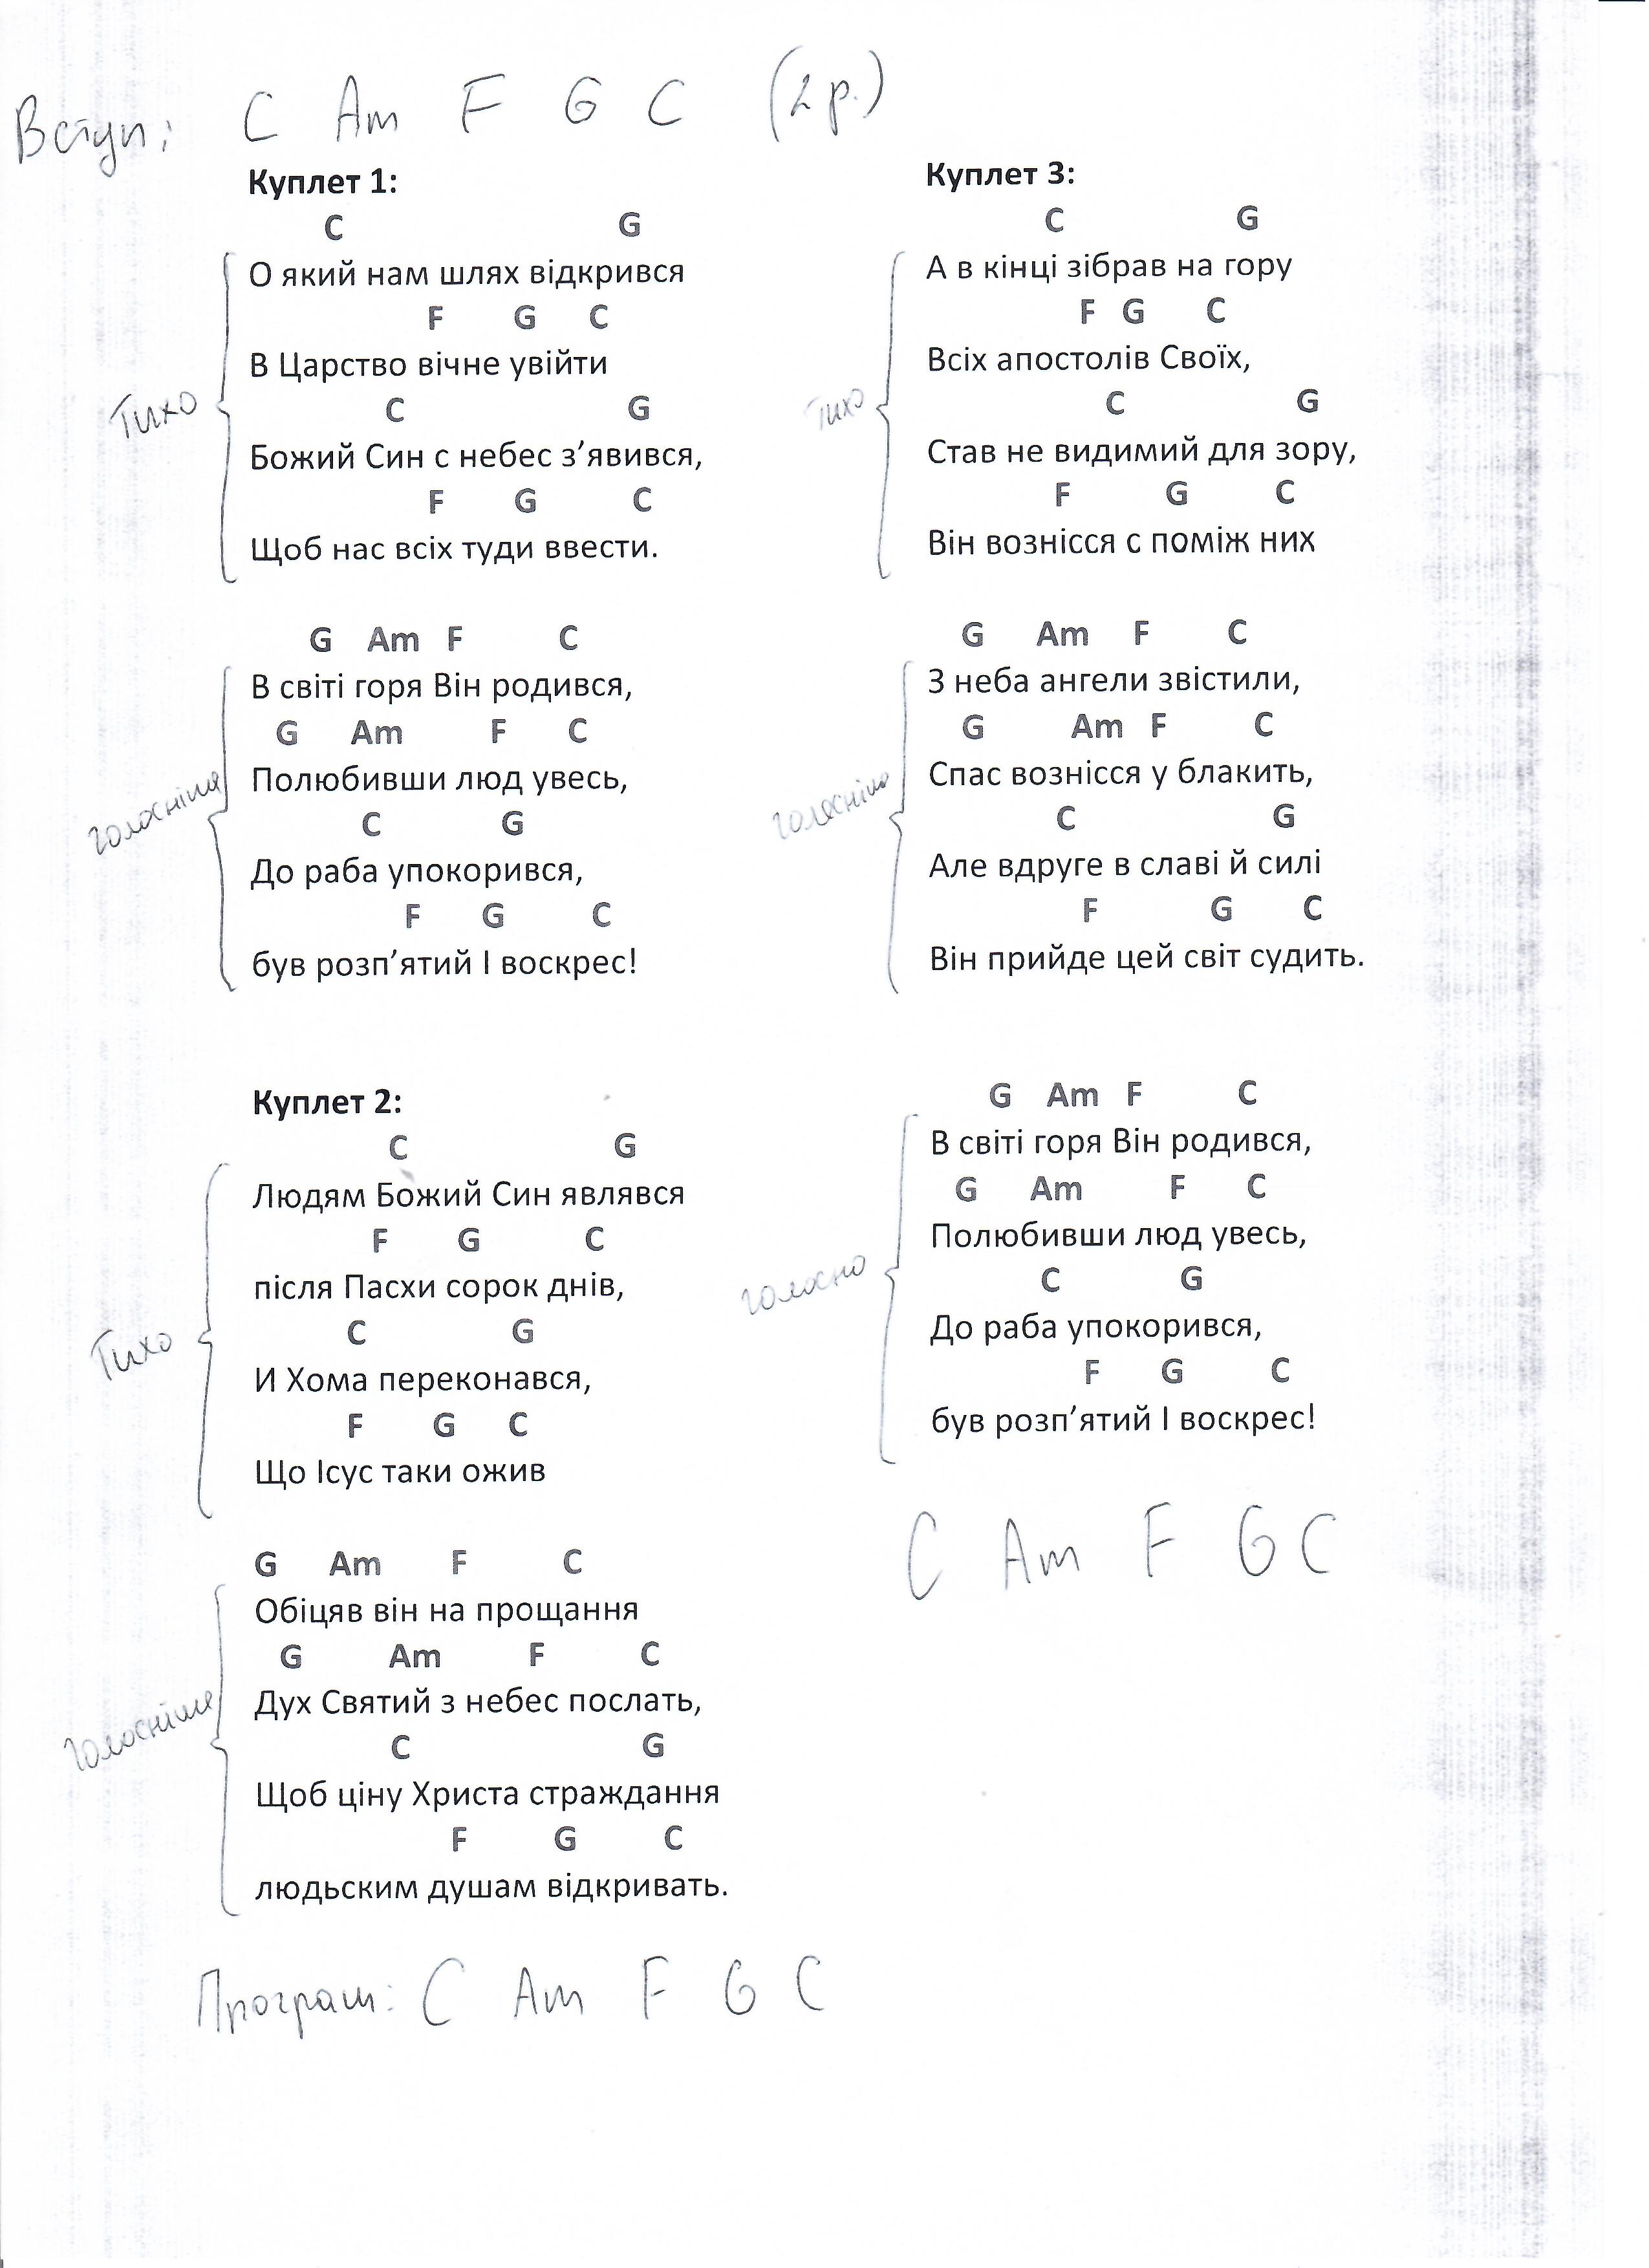 Вступ: C Am F G C (2 р.)
Куплет 1:
C G
О який нам шлях відкрився
F G C
В Царство вічне увійти
C G
Тихо
Божий Син с небес з’явився,
F G C
Щоб нас всіх туди ввести.
G Am F C
В світі горя Він родився,
G Am F C
Полюбивши люд увесь,
голосніше
C G
До раба упокорився,
F G C
був розп’ятий І воскрес!
Куплет 2:
C G
Людям Божий Син являвся
F G C
після Пасхи сорок днів,
Тихо
C G
И Хома переконався,
F G C
Що Ісус таки ожив
G Am F C
Обіцяв він на прощання
G Am F C
Дух Святий з небес послать,
голосніше
C G
Щоб ціну Христа страждання
F G C
людьским душам відкривать.
Програш: C Am F G C
Куплет 3:
C G
А в кінці зібрав на гору
F G C
Всіх апостолів Своїх,
Тихо
C G
Став не видимий для зору,
F G C
Він вознісся с поміж них
G Am F C
З неба ангели звістили,
G Am F C
Спас вознісся у блакить,
голосніше
C G
Але вдруге в славі й силі
F G C
Він прийде цей світ судить.
G Am F C
В світі горя Він родився,
G Am F C
Полюбивши люд увесь,
голосно
C G
До раба упокорився,
F G C
був розп’ятий І воскрес!
C Am F G C